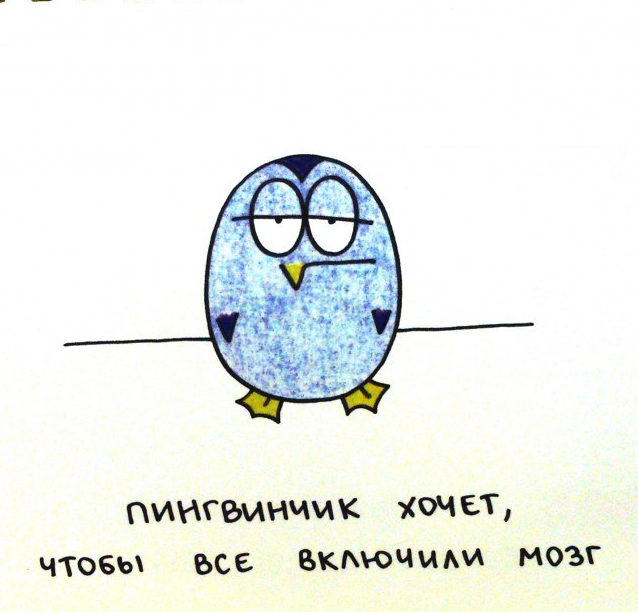 ПИНГВИНЧИК ХОЧЕТ,
ЧТОБЫ ВСЕ ВКЛЮЧИЛИ МОЗГ